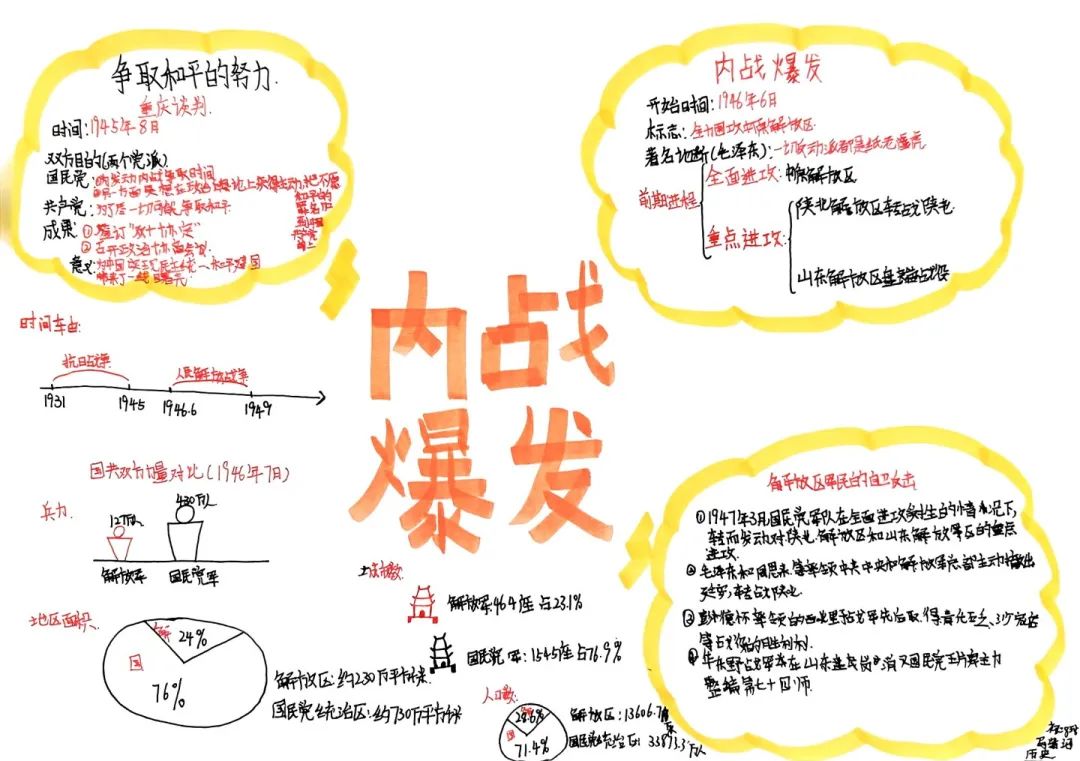 争取和平的努力
重庆谈判
时间：1945年8月
双方目的(两个党派)
国民党：为发动内战争取时间
共产党：为了尽一切可能争取和平
成果：①签订“双十协定”
②召开政治协商会议
意义：为中国实现民主统一、和平建国
带来了一线曙光
内战爆发
开始时间：1946年6月
标志：全力围攻中原解放区
著名论断(毛泽东)：一切反动派都是纸老虎
前期进程
全面进攻：中原解放区
重点进攻：
陕北解放区转战陕北
山东解放区孟良崮战役
内战
爆发
时间车由：
抗日战争
人民解放战争
1931 1945 1946.6 1949
国共双方力量对比(1946年7月)
兵力
430万人
解放军 国民党军
地区面积
解 24%
国
76%
解放区：约230万平方千米
国民党统治区：约730万平方千米
城市数
解放军464座 占23.1%
国民党军：1545座 占76.9%
人口数：
28.6%
国
71.4%
解放区：13606.7万
国民党统治区：33873.3万人
解放区军民的自卫攻击
①1947年3月国民党军队在全面进攻的情况下，
转而发动对陕北解放区和山东解放区的重点
进攻。
②毛泽东和周恩来等率领中共中央和解放军总部主动撤出
延安，转战陕北
③彭德怀率领的西北野战军先后取得青化砭、
等战役的胜利
④华东野战军在山东孟良崮消灭国民党王牌军主力
整编第七十四师。
历史